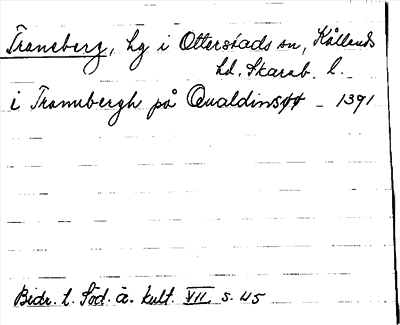 Traneberg, hg i Otterstads sn, Kållands
hd, Skarab. l.
i Tranubergh på Qualdinsøø - 1391
Bidr. t. Söd. ä. kult. VII s. 45